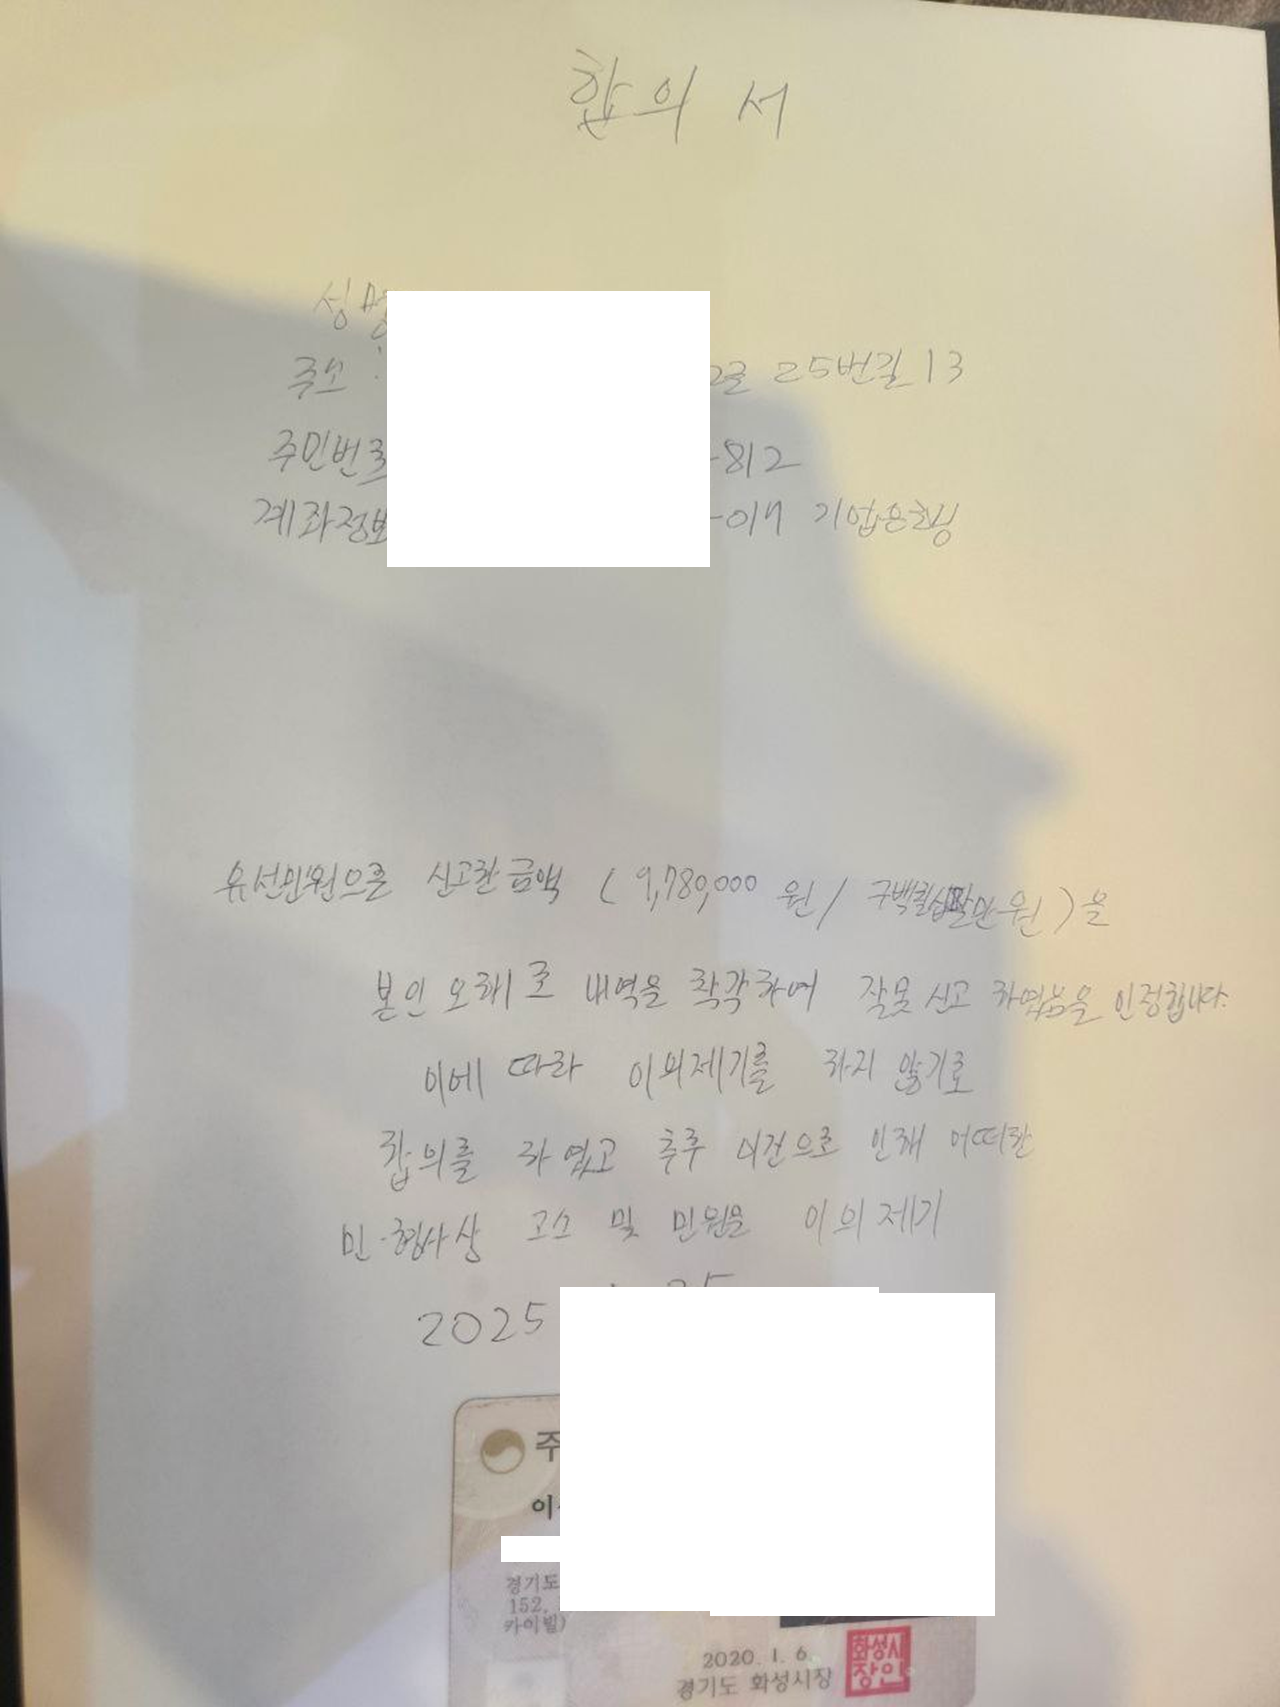 합의서
성명
주소 : 2로 25번길 13
주민번호 -812
계좌정보 -017 기업은행
유선민원으로 신고한 금액 ( 9,780,000 원 / 구백칠십팔만 원 ) 을
본인 오해로 내역을 착각하여 잘못 신고 하였음을 인정합니다.
이에 따라 이의제기를 하지 않기로
합의를 하였고 추후 이건으로 인해 어떠한
민·형사상 고소 및 민원을 이의제기
2025
주
이
경기도
152,
카이빌)
2020. 1. 6.
경기도 화성시장
화성시
장인